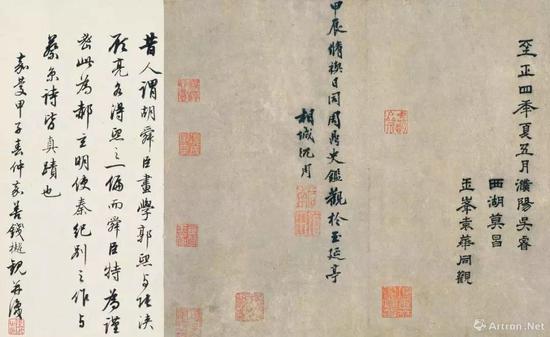 至正四年夏五月濮陽吳睿
西湖莫昌
玉峯袁華同觀
甲辰脩禊日同周鼎史鑑觀於玉延亭
相城沈周
昔人謂胡舜臣畫學郭熙與張浹
顧亮各得熙之一偏而舜臣特為謹
密此為郝玄明使秦紀別之作與
蔡京詩皆真蹟也
嘉慶甲子春仲嘉善錢樾觀并識
Artron.Net